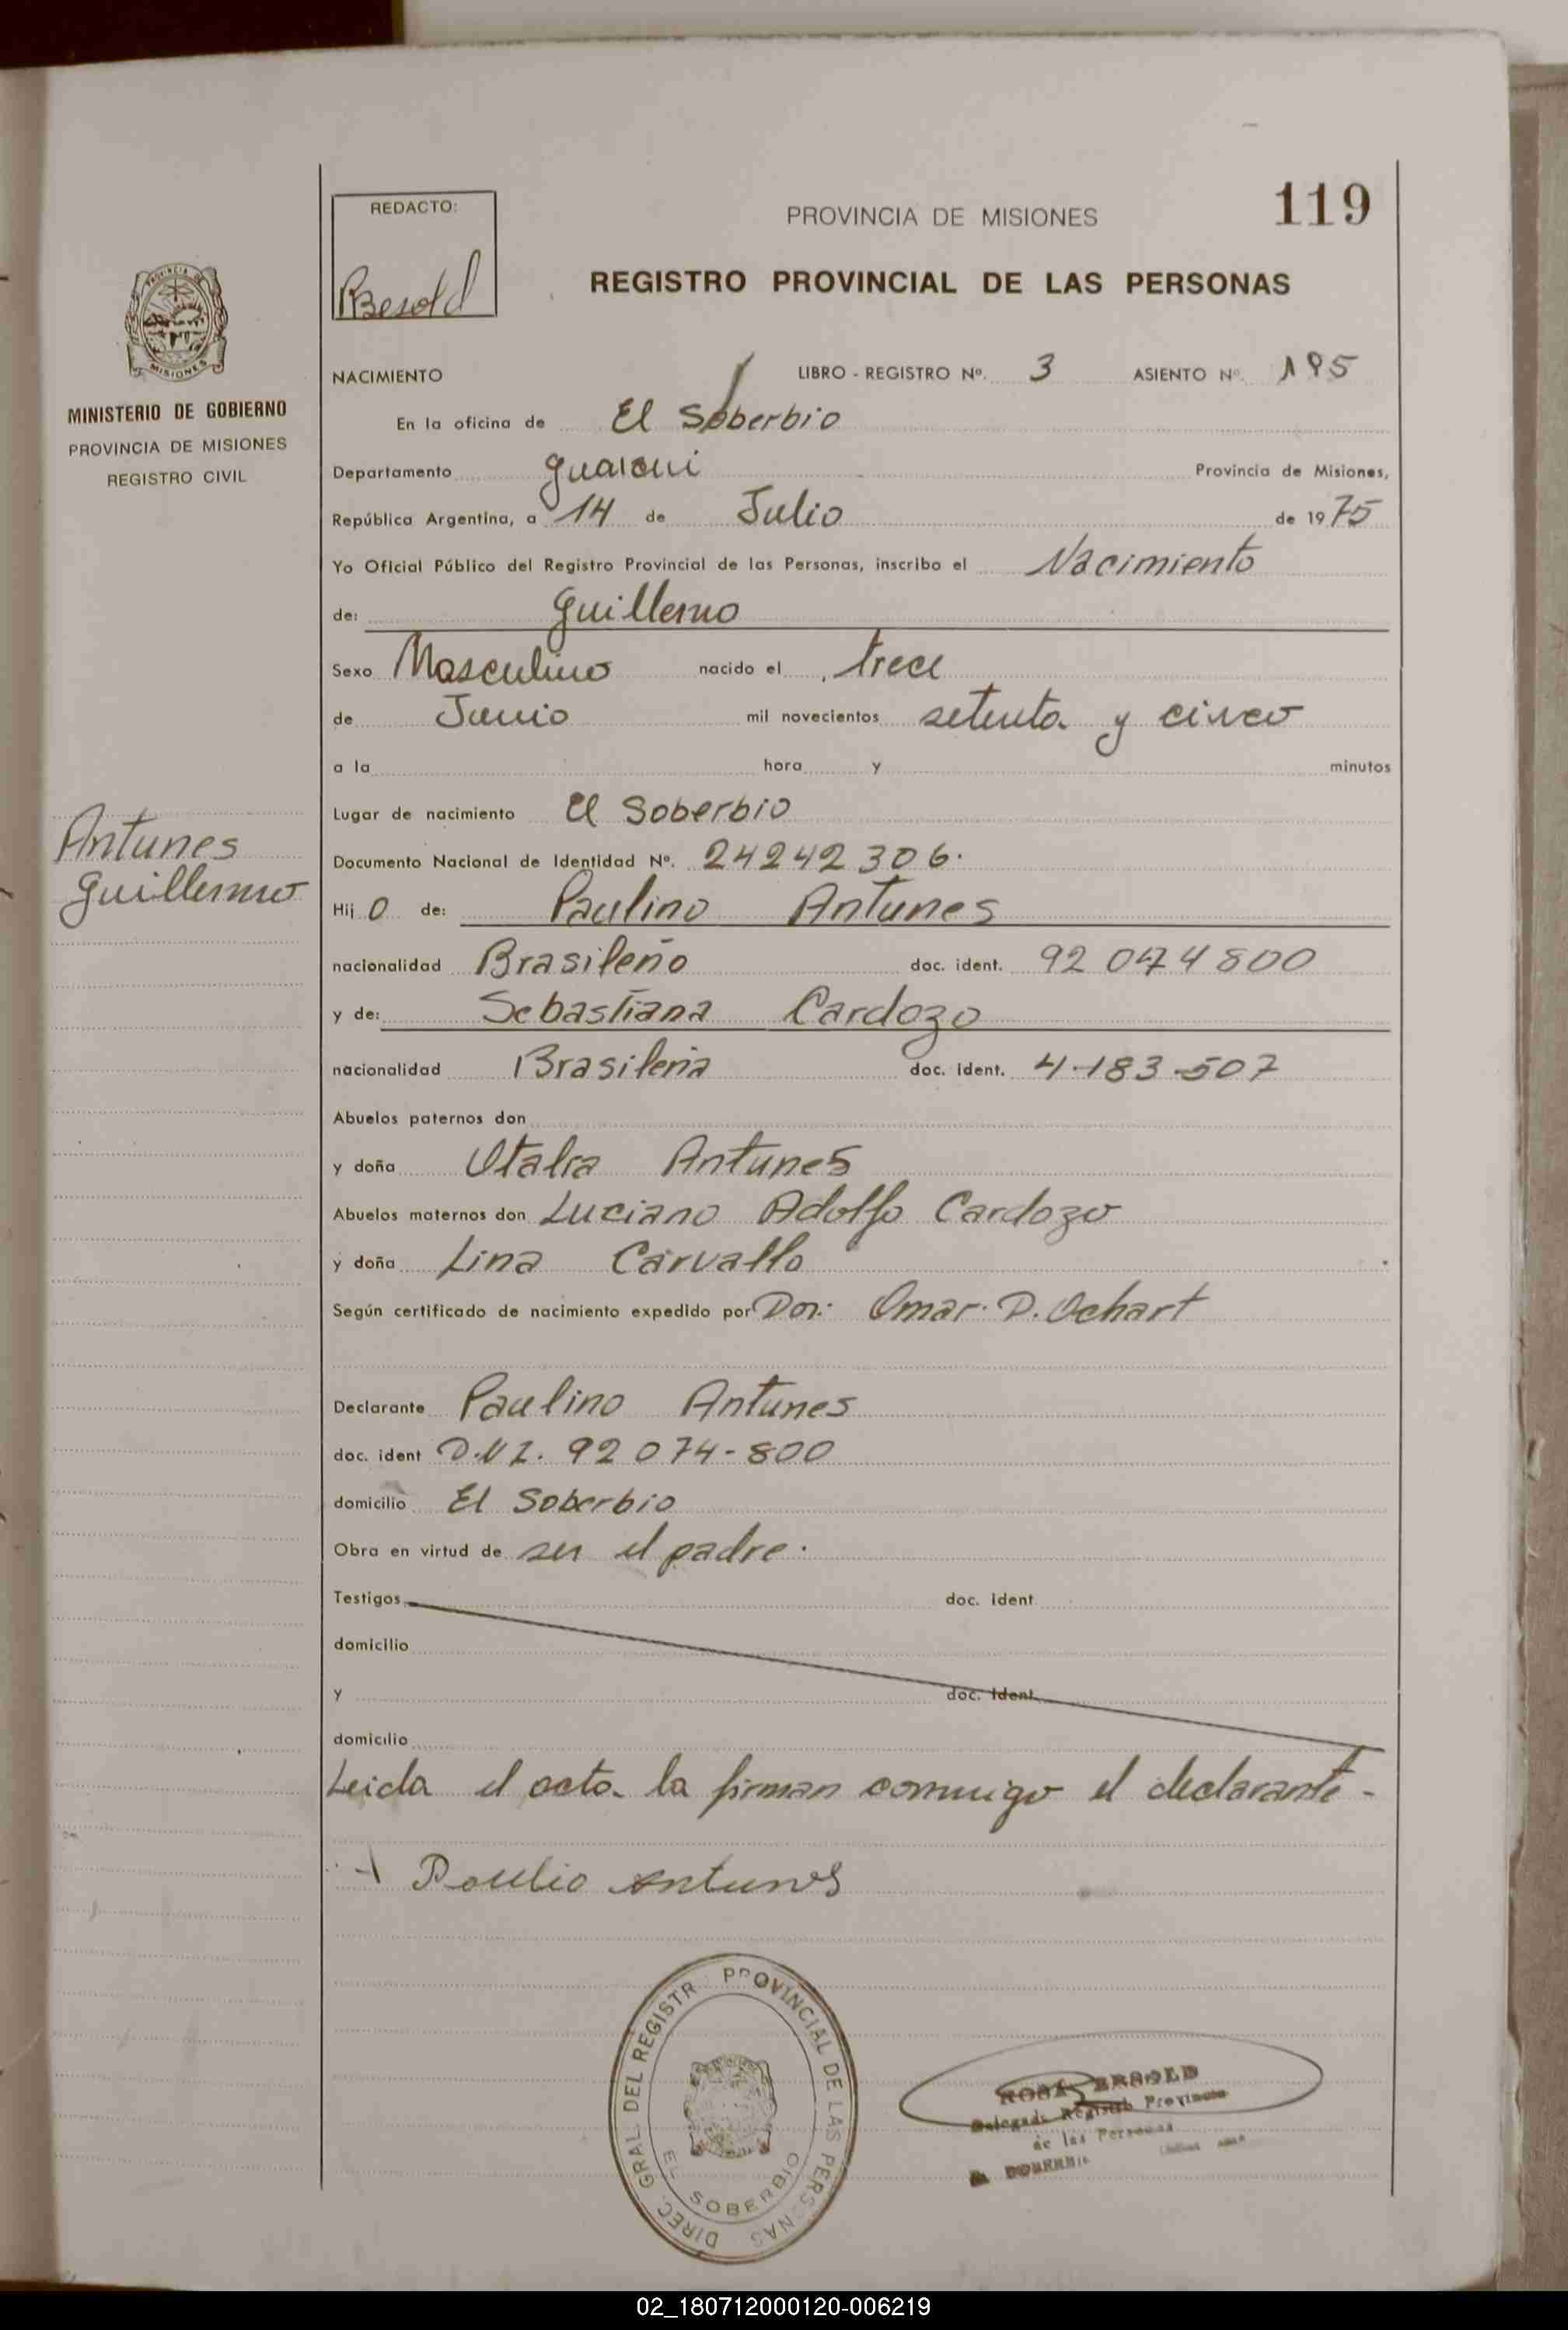 REDACTO:
Besold
PROVINCIA DE MISIONES
119
REGISTRO PROVINCIAL DE LAS PERSONAS
MISIONES
MINISTERIO DE GOBIERNO
PROVINCIA DE MISIONES
REGISTRO CIVIL
NACIMIENTO LIBRO - REGISTRO Nº. 3 ASIENTO Nº. 195
En la oficina de El Soberbio
Departamento Guarani Provincia de Misiones,
República Argentina, a 14 de Julio de 1975
Yo Oficial Público del Registro Provincial de las Personas, inscribo el Nacimiento
de: Guillermo
Sexo Masculino nacido el trece
de Junio mil novecientos setenta y cinco
a la hora y minutos
Lugar de nacimiento El Soberbio
Antunes
Guillermo
Documento Nacional de Identidad Nº. 24242306.
Hij o de: Paulino Antunes
nacionalidad Brasileño doc. ident. 92 074 800
y de: Sebastiana Cardozo
nacionalidad Brasileña doc. ident. 4-183-507
Abuelos paternos don
y doña Otalia Antunes
Abuelos maternos don Luciano Adolfo Cardozo
y doña Lina Carvallo
Según certificado de nacimiento expedido por Don: Omar. D. Ochart
Declarante Paulino Antunes
doc. ident D.N I. 92 074-800
domicilio El Soberbio
Obra en virtud de ser el padre.
Testigos doc. ident
domicilio
y doc. ident
domicilio
Leida el acta la firman conmigo el declarante-
Paulio Antunes
DIREC. GRAL. DEL REGISTR PROVINCIAL DE LAS PERSONAS
EL SOBERBIO
ROSA BESOLD
Delegada Registro Provincial
de las Personas
SOBERBIO
02_180712000120-006219